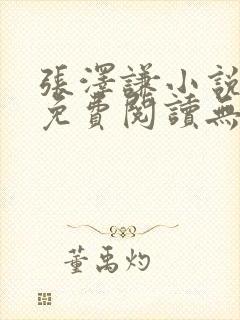 張澤謙小說
免費閱讀無
董禹灼